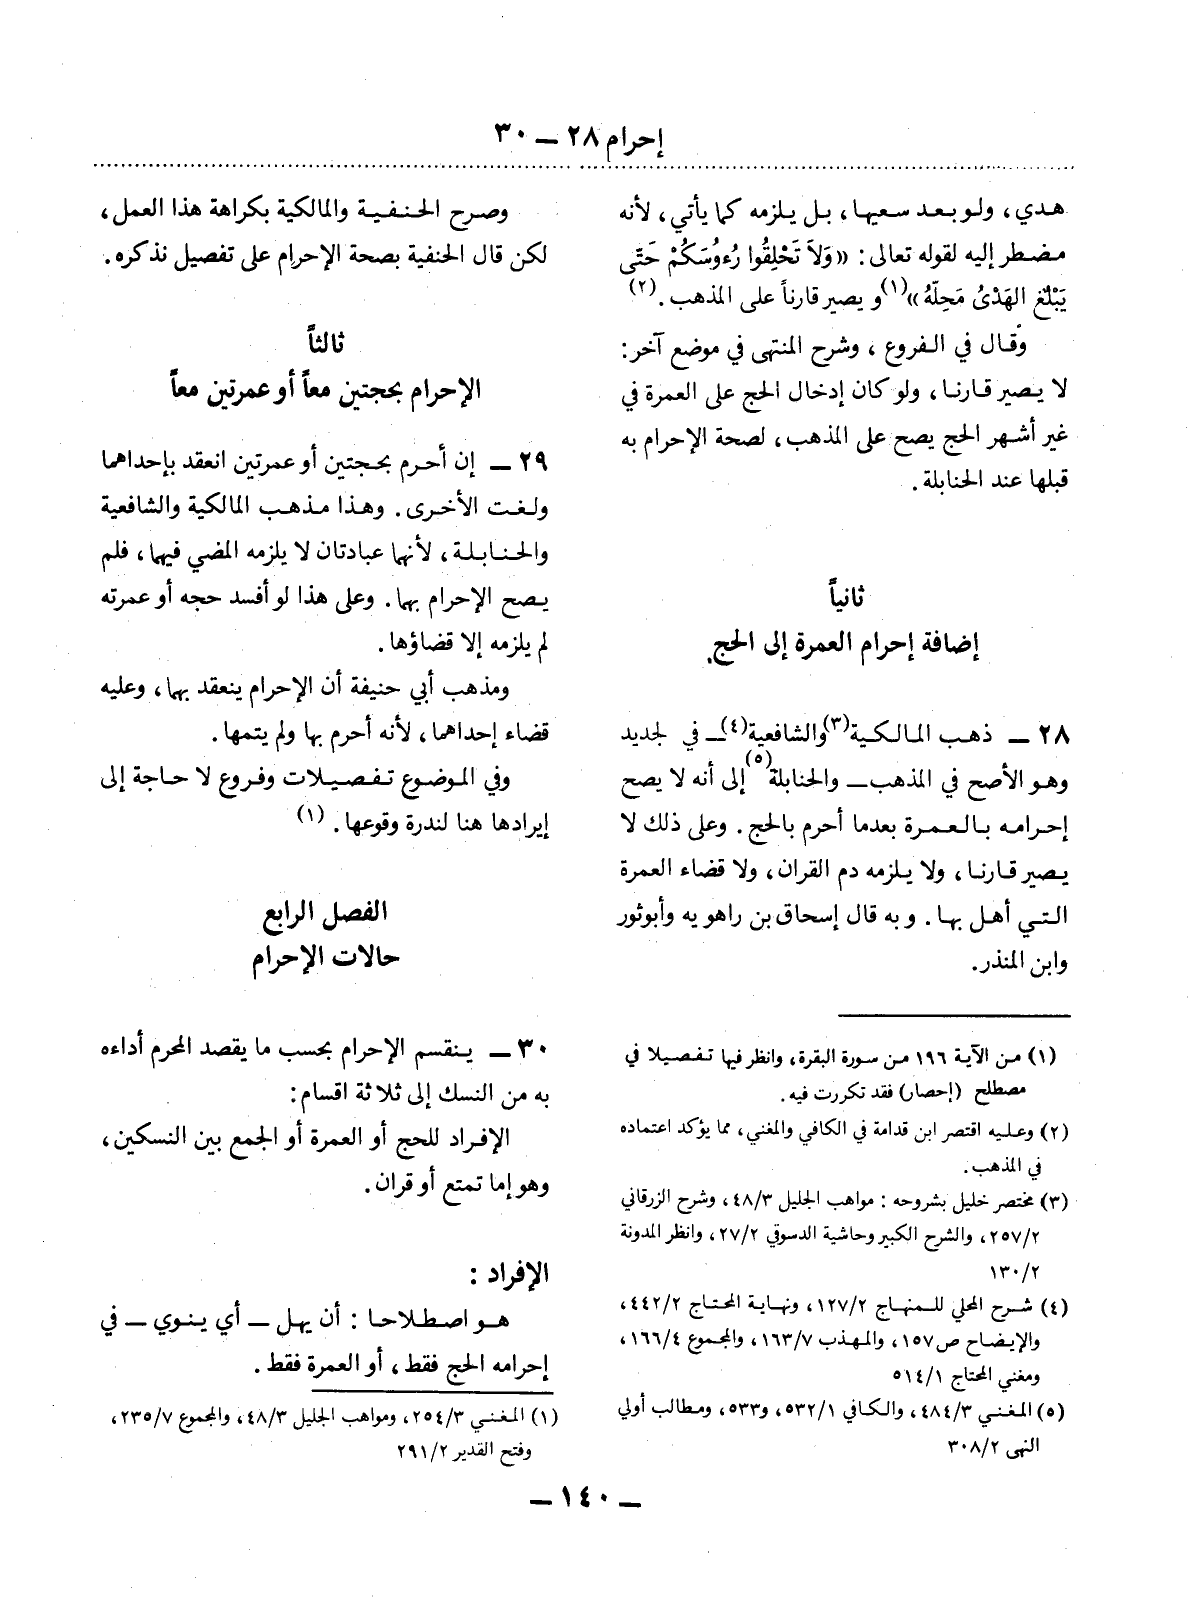 إحرام ٢٨ ــ ٣٠
هدي، ولو بعد سعيها، بل يلزمه كما يأتي، لأنه
مضطر إليه لقوله تعالى: «وَلاَ تَحْلِقُوا رُءوُسَكُمْ حَتَّى
يَبْلُغَ الهَدْىُ مَحِلّهُ»(١) و يصير قارناً على المذهب. (٢)
وقال في الفروع ، وشرح المنتهى في موضع آخر:
لا يصير قارنا، ولو كان إدخال الحج على العمرة في
غير أشهر الحج يصح على المذهب، لصحة الإحرام به
قبلها عند الحنابلة.
ثانياً
إضافة إحرام العمرة إلى الحج.
٢٨ ــ ذهب المالكية(٣) والشافعية(٤) ــ في لجديد
وهو الأصح في المذهب ــ والحنابلة(٥) إلى أنه لا يصح
إحرامه بالعمرة بعدما أحرم بالحج. وعلى ذلك لا
يصير قارنا، ولا يلزمه دم القران، ولا قضاء العمرة
التي أهل بها. و به قال إسحاق بن راهو يه وأبوثور
وابن المنذر.
(١) من الآية ١٩٦ من سورة البقرة، وانظر فيها تفصيلا في
مصطلح (إحصار) فقد تكررت فيه.
(٢) وعليه اقتصر ابن قدامة في الكافي والمغني، مما يؤكد اعتماده
في المذهب.
(٣) مختصر خليل بشروحه : مواهب الجليل ٤٨/٣، وشرح الزرقاني
٢٥٧/٢، والشرح الكبير وحاشية الدسوقي ٢٧/٢، وانظر المدونة
١٣٠/٢
(٤) شرح المحلي للمنهاج ١٢٧/٢، ونهاية المحتاج ٤٤٢/٢،
والإيضاح ص١٥٧، والمهذب ١٦٣/٧، والمجموع ١٦٦/٤،
ومغني المحتاج ٥١٤/١
(٥) المغني ٤٨٤/٣، والكافي ٥٣٢/١، و٥٣٣، ومطالب أولي
النهى ٣٠٨/٢
وصرح الحنفية والمالكية بكراهة هذا العمل،
لكن قال الحنفية بصحة الإحرام على تفصيل نذكره.
ثالثاً
الإحرام بحجتين معاً أو عمرتين معاً
٢٩ ــ إن أحرم بحجتين أو عمرتين انعقد بإحداهما
ولغت الأخرى. وهذا مذهب المالكية والشافعية
والحنابلة، لأنهما عبادتان لا يلزمه المضي فيهما، فلم
يصح الإحرام بهما. وعلى هذا لو أفسد حجه أو عمرته
لم يلزمه إلا قضاؤها.
ومذهب أبي حنيفة أن الإحرام ينعقد بهما، وعليه
قضاء إحداهما، لأنه أحرم بها ولم يتمها.
وفي الموضوع تفصيلات وفروع لا حاجة إلى
إيرادها هنا لندرة وقوعها. (١)
الفصل الرابع
حالات الإحرام
٣٠ ــ ينقسم الإحرام بحسب ما يقصد المحرم أداءه
به من النسك إلى ثلاثة اقسام:
الإفراد للحج أو العمرة أو الجمع بين النسكين،
وهو إما تمتع أو قران.
الإفراد :
هو اصطلاحا : أن يهل ــ أي ينوي ــ في
إحرامه الحج فقط، أو العمرة فقط.
(١) المغني ٢٥٤/٣، ومواهب الجليل ٤٨/٣، والمجموع ٢٣٥/٧،
وفتح القدير ٢٩١/٢
ــ ١٤٠ ــ